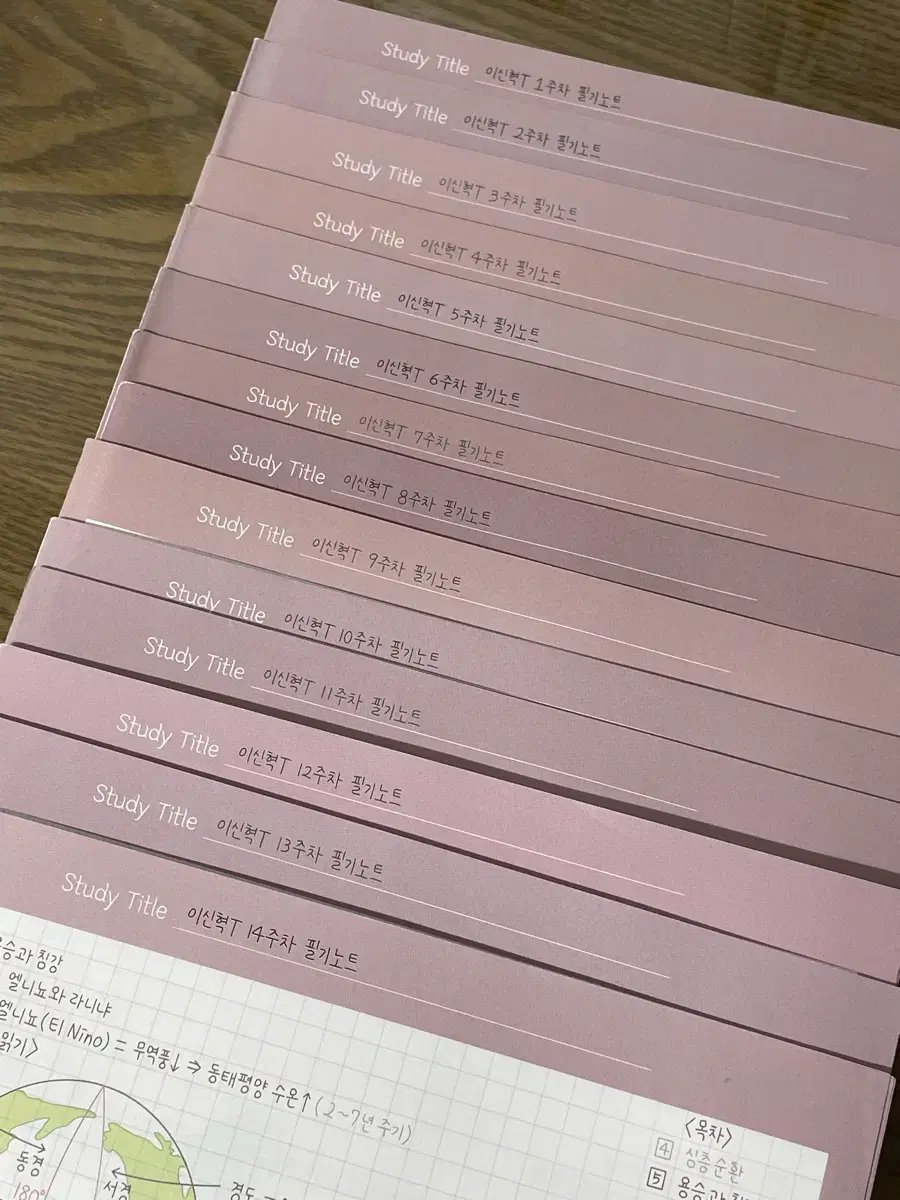 Study Title 이신혁T 1주차 필기노트
Study Title 이신혁T 2주차 필기노트
Study Title 이신혁T 3주차 필기노트
Study Title 이신혁T 4주차 필기노트
Study Title 이신혁T 5주차 필기노트
Study Title 이신혁T 6주차 필기노트
Study Title 이신혁T 7주차 필기노트
Study Title 이신혁T 8주차 필기노트
Study Title 이신혁T 9주차 필기노트
Study Title 이신혁T 10주차 필기노트
Study Title 이신혁T 11주차 필기노트
Study Title 이신혁T 12주차 필기노트
Study Title 이신혁T 13주차 필기노트
Study Title 이신혁T 14주차 필기노트
침강
엘니뇨와 라니냐
엘니뇨(El Nino) = 무역풍↓ ⇒ 동태평양 수온↑ (2~7년 주기)
읽기〉
동경
180°
서경
경도
〈목차〉
4 심층순환
5